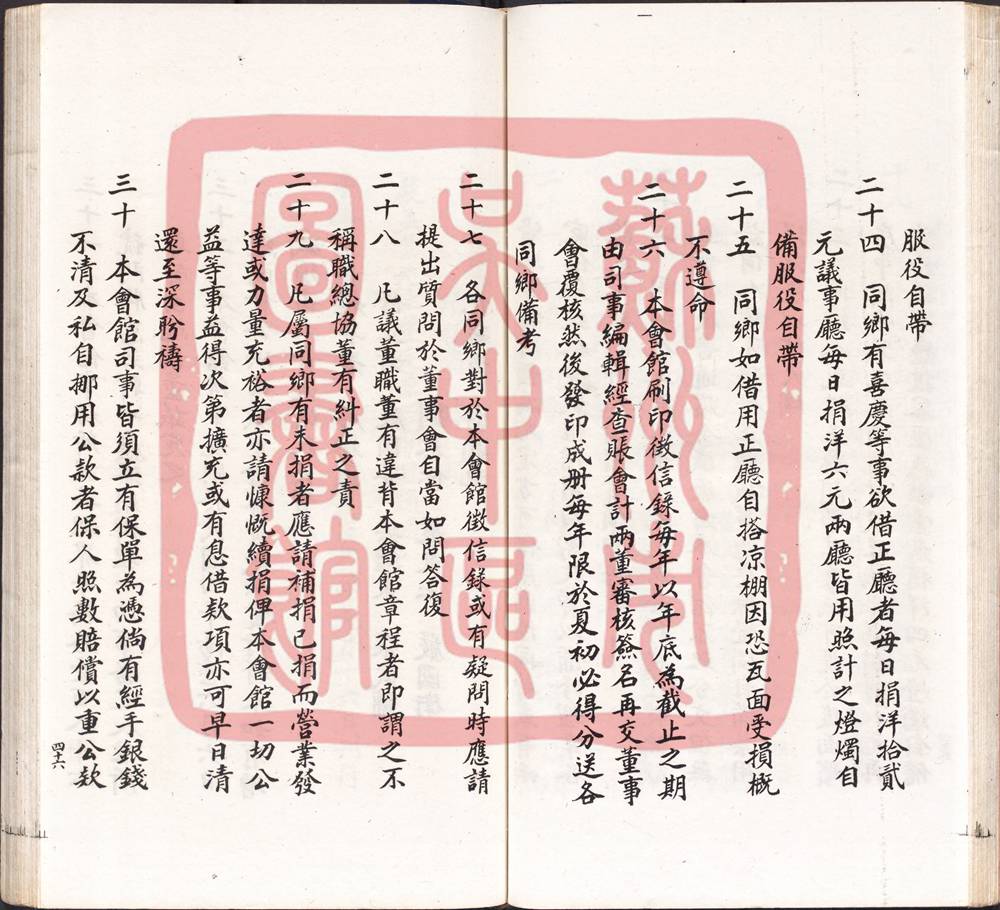 服役自帶
二十四 同鄉有喜慶等事欲借正廳者每日捐洋拾貳
元議事廳每日捐洋六元兩廳皆用照計之燈燭自
備服役自帶
二十五 同鄉如借用正廳自搭凉棚因恐瓦面受損概
不遵命
二十六 本會館刷印徵信錄每年以年底為截止之期
由司事編輯經查賬會計兩董審核簽名再交董事
會覆核然後發印成册每年限於夏初必得分送各
同鄉備考
二十七 各同鄉對於本會館徵信録或有疑問時應請
提出質問於董事會自當如問答復
二十八 凡議董職董有違背本會館章程者即謂之不
稱職總協董有糾正之責
二十九 凡屬同鄉有未捐者應請補捐已捐而營業發
達或力量充裕者亦請慷慨續捐俾本會館一切公
益等事益得次第擴充或有息借款項亦可早日清
還至深盼禱
三十 本會館司事皆須立有保單為憑倘有經手銀錢
不清及私自挪用公款者保人照數賠償以重公款
四十六
蘇州市
吳中區
圖書館